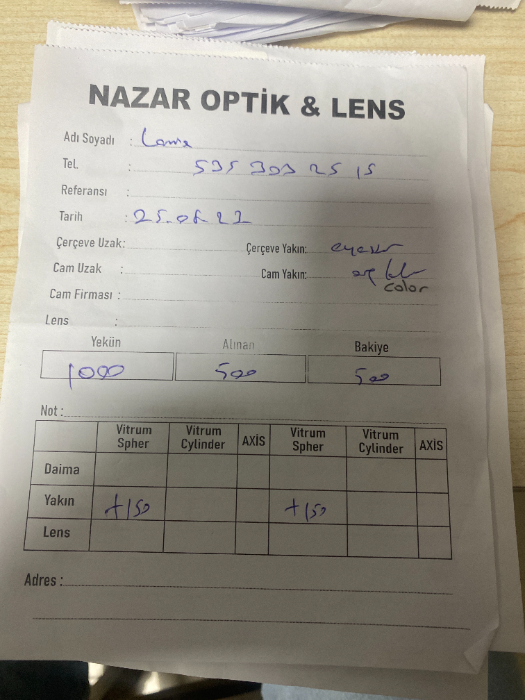 NAZAR OPTİK & LENS
Adı Soyadı :
Tel. : 535 303 25 15
Referansı :
Tarih :
Çerçeve Uzak: Çerçeve Yakın:
Cam Uzak : Cam Yakın:
color
Cam Firması :
Lens :
Yekün Alınan Bakiye
1000 500 500
Not :
Vitrum Spher Vitrum Cylinder AXİS Vitrum Spher Vitrum Cylinder AXİS
Daima
Yakın +150 +150
Lens
Adres :